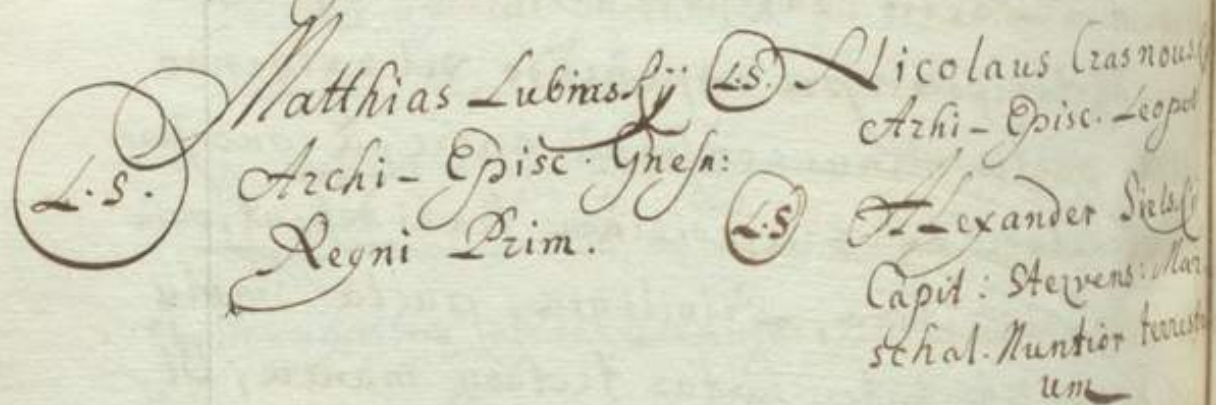 L.S. Matthias Lubinskij
Archi-Episc. Gnesn:
Regni Prim.
L.S. Nicolaus Crasnous
Arhi-Episc. Leopol
L.S Alexander Siels
Capit: Stezvens: Mar
schal. Nuntior terrestr
um